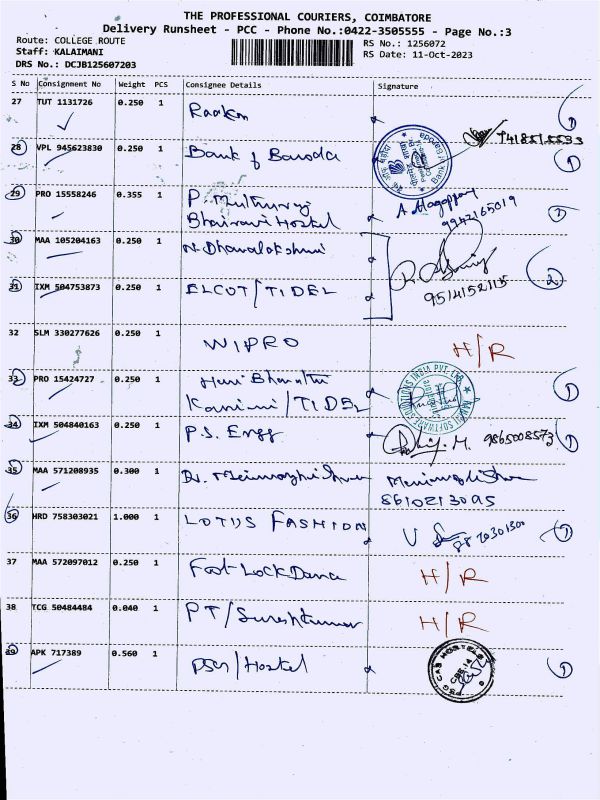 THE PROFESSIONAL COURIERS, COIMBATORE
Delivery Runsheet - PCC - Phone No.:0422-3505555 - Page No.:3
Route: COLLEGE ROUTE RS No.: 1256072
Staff: KALAIMANI RS Date: 11-Oct-2023
DRS No.: DCJB125607203
S No Consignment No Weight PCS Consignee Details Signature
27 TUT 1131726 0.250 1
28 VPL 945623830 0.250 1 Bank of Baroda
29 PRO 15558246 0.355 1 P.
Bhairavi Hostel 9942165019
30 MAA 105204163 0.250 1 N. Dhanalakshmi
31 IXM 504753873 0.250 1 ELCOT/TIDEL
32 SLM 330277626 0.250 1 WIPRO H/R
33 PRO 15424727 0.250 1 Hari Bharathi
/TIDEL
34 IXM 504840163 0.250 1 P.S. Engg M. 9865008573
35 MAA 571208935 0.300 1
8610213095
36 HRD 758303021 1.000 1 LOTUS FASHION
37 MAA 572097012 0.250 1 Foot Lock Dance H/R
38 TCG 50484484 0.040 1 PT/Sureshkumar H/R
39 APK 717389 0.560 1 PSG/Hostel